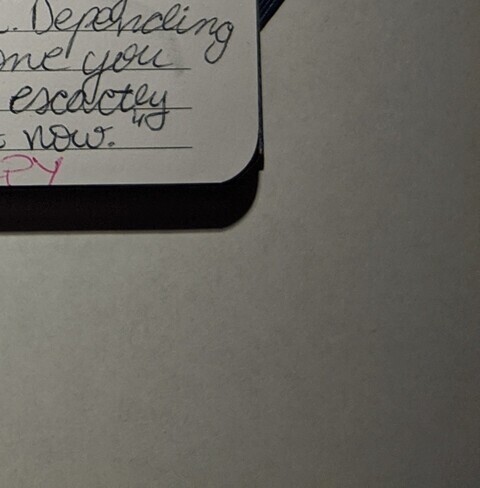 . Depending
one you
exactly
t now."
PY